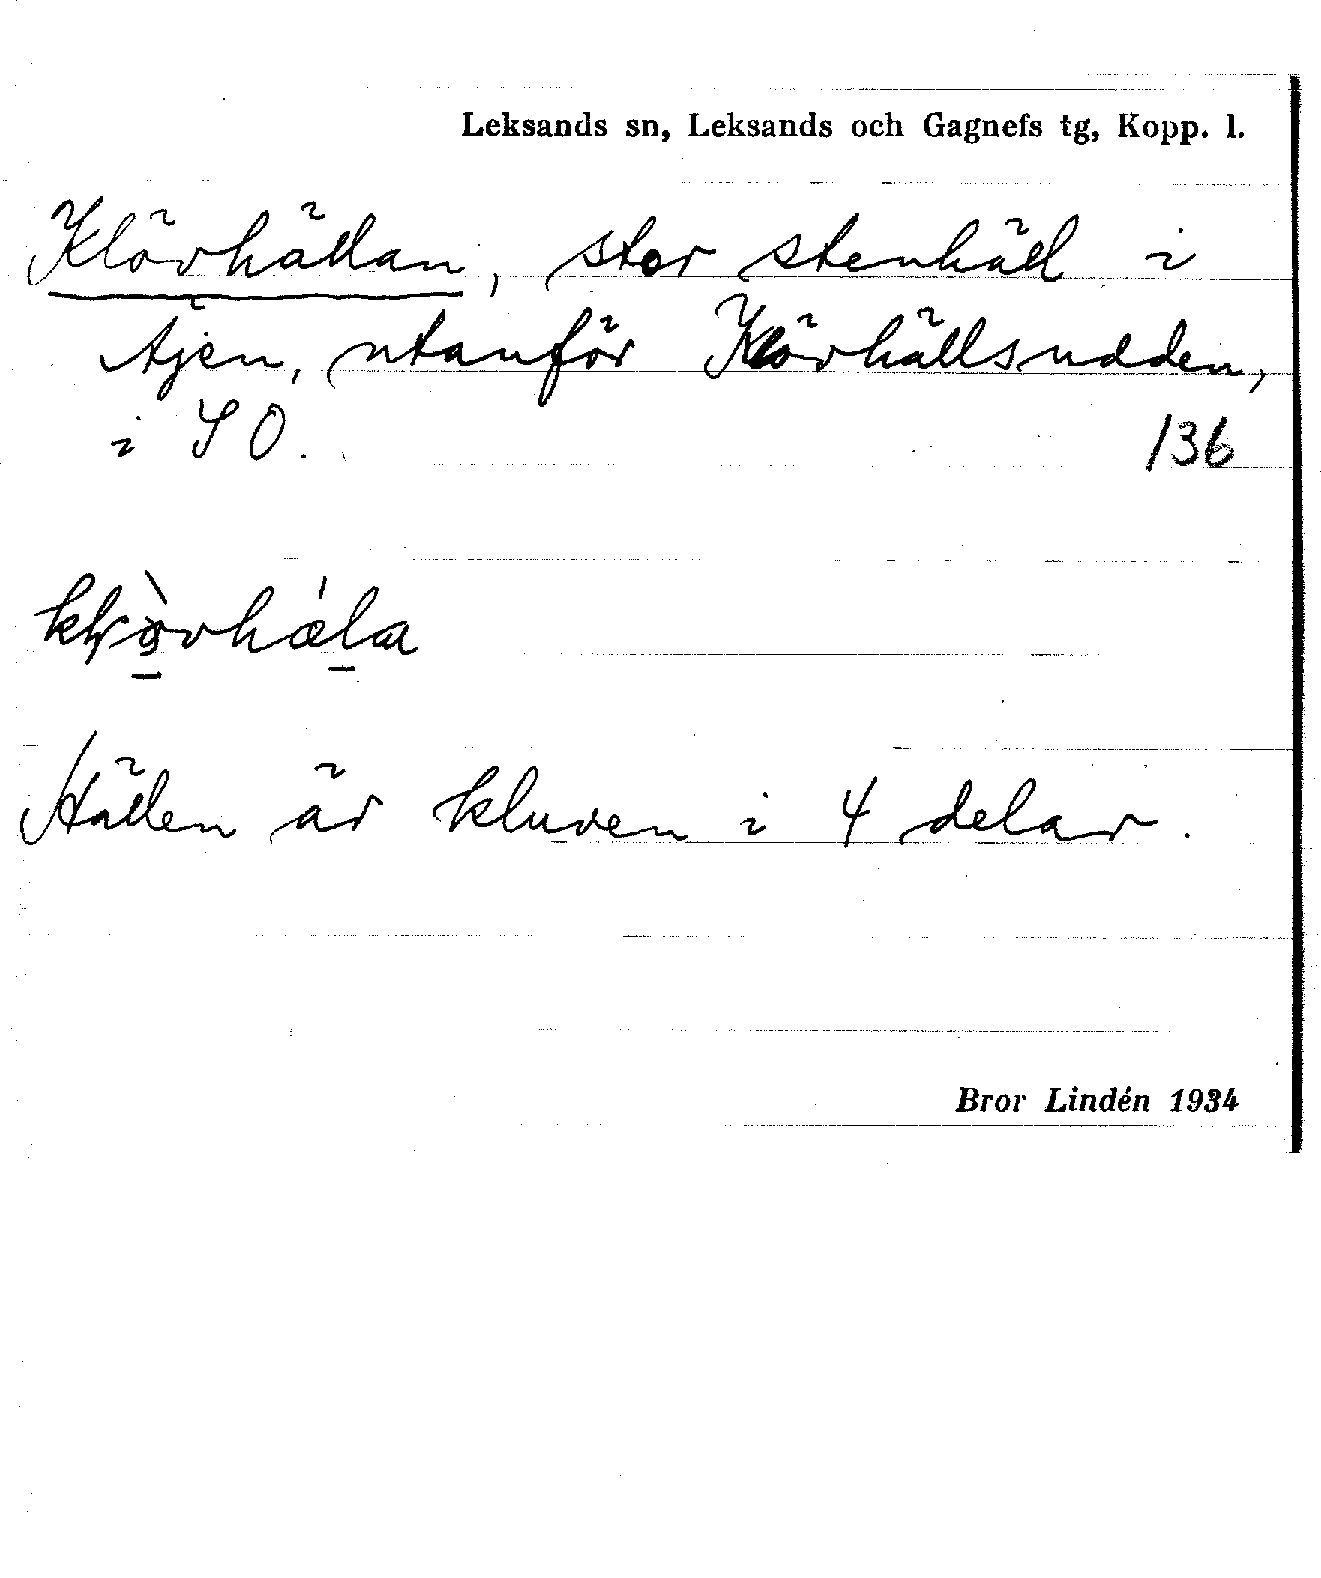 Leksands sn, Leksands och Gagnefs tg, Kopp. l.
Klövhällan, stor stenhäll i
Äjen, utanför Klövhällsudden,
i SO. 136
Hällen är kluven i 4 delar.
Bror Lindén 1934